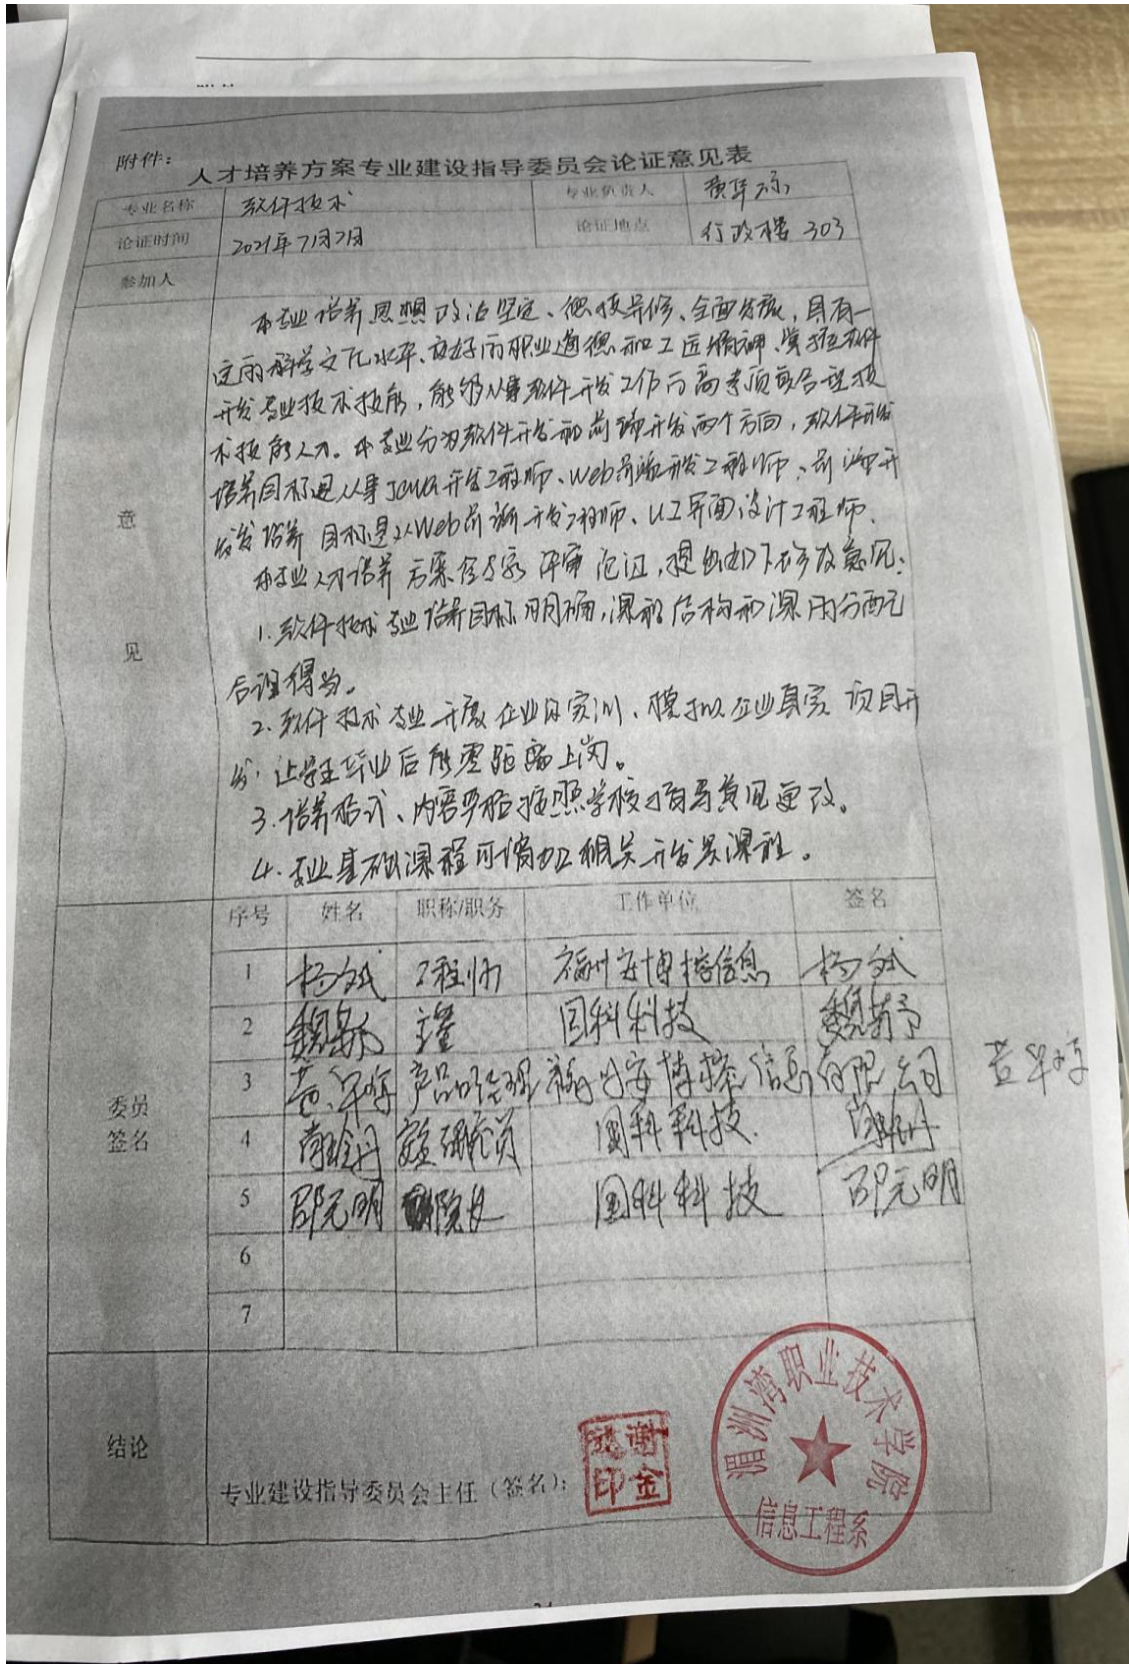 附件：
人才培养方案专业建设指导委员会论证意见表
专业名称 软件技术 专业负责人
论证时间 2021年7月7日 论证地点 行政楼 303
参加人
意见
本专业培养思想政治坚定、德技并修、全面发展，具有一
定的科学文化水平、良好的职业道德和工匠精神、掌握软件
开发专业技术技能，能够从事软件开发工作的高素质复合型技
术技能人才。本专业分为软件开发和前端开发两个方向，软件开发
培养目标是从事Java开发工程师、Web前端开发工程师、前端开
发培养目标是从Web前端开发工程师、UI界面设计工程师。
本专业人才培养方案经专家评审论证，提出如下修改意见：
1. 软件技术专业培养目标明确，课程结构和课时分配
合理得当。
2. 软件技术专业开展企业级实训、模拟企业真实项目开
发，让学生毕业后能零距离上岗。
3. 培养格式、内容严格按照学校指导意见更改。
4. 专业基础课程可增加相关开发类课程。
委员签名
序号 姓名 职称/职务 工作单位 签名
1 杨斌 工程师 福州安博榕信息 杨斌
2 国科科技
3 产品经理 福州安博榕信息有限公司
4 国科科技
5 邵元明 副院长 国科科技 邵元明
6
7
结论
专业建设指导委员会主任（签名）：
湄洲湾职业技术学院
信息工程系